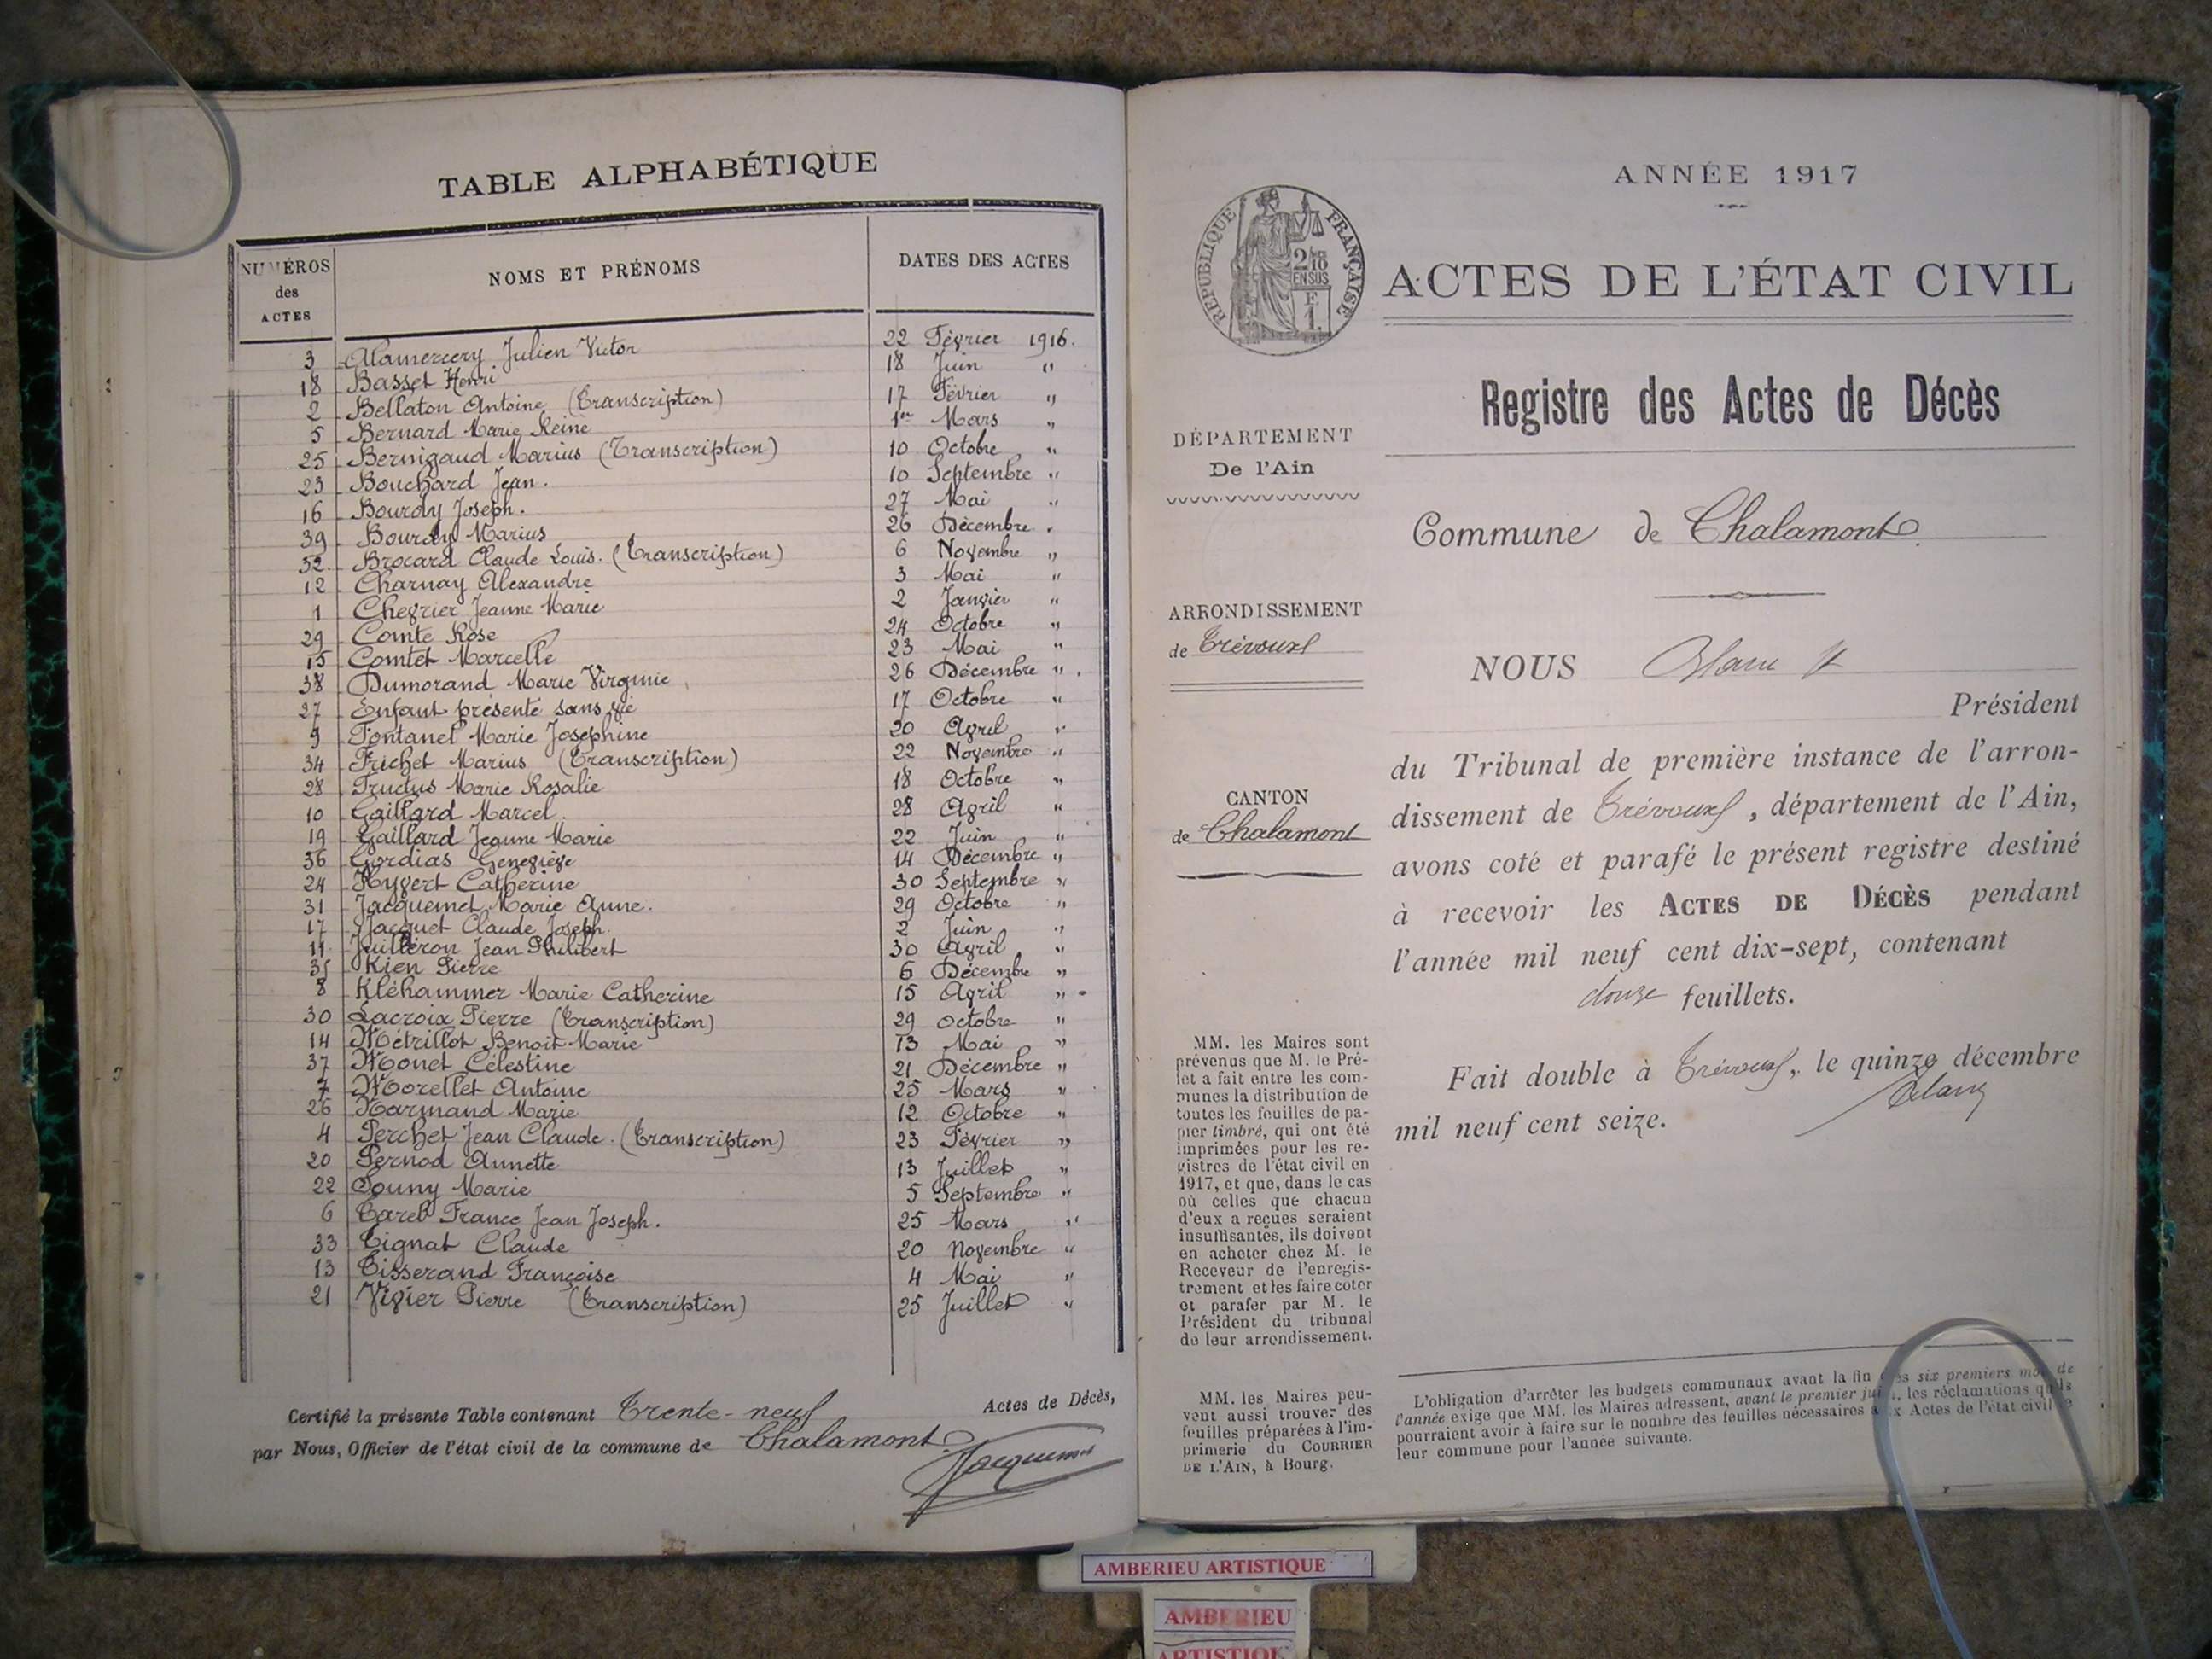 TABLE ALPHABÉTIQUE
NUMÉROS des ACTES
NOMS ET PRÉNOMS
DATES DES ACTES
3 Alamercery Julien Victor 22 Février 1916.
18 Basset Henri 18 Juin "
2 Bellaton Antoine (Transcription) 17 Février "
5 Bernard Marie Reine 1er Mars "
25 Bernigaud Marius (Transcription) 10 Octobre "
23 Bouchard Jean. 10 Septembre "
16 Bourdy Joseph. 27 Mai "
39 Bourdy Marius 26 Décembre "
32 Brocard Claude Louis. (Transcription) 6 Novembre "
12 Charnay Alexandre 3 Mai "
1 Chevrier Jeanne Marie 2 Janvier "
29 Comte Rose 24 Octobre "
15 Comtet Marcelle 23 Mai "
38 Dumorand Marie Virginie 26 Décembre "
27 Enfant présenté sans vie 17 Octobre "
9 Fontanel Marie Josephine 20 Avril "
34 Frichet Marius (Transcription) 22 Novembre "
28 Fructus Marie Rosalie 18 Octobre "
10 Gaillard Marcel 28 Avril "
19 Gaillard Jeanne Marie 22 Juin "
36 Gordias Geneviève 14 Décembre "
24 Hyvert Catherine 30 Septembre "
31 Jacquemet Marie Anne. 29 Octobre "
17 Jacquet Claude Joseph. 2 Juin "
11 Juilleron Jean Philibert 30 Avril "
35 Kien Pierre 6 Décembre "
8 Kléhammer Marie Catherine 15 Avril "
30 Lacroix Pierre (Transcription) 29 Octobre "
14 Métrillot Benoit Marie 13 Mai "
37 Monet Célestine 21 Décembre "
7 Morellet Antoine 25 Mars "
26 Normand Marie 12 Octobre "
4 Perchet Jean Claude. (Transcription) 23 Février "
20 Pernod Annette 13 Juillet "
22 Pouny Marie 5 Septembre "
6 Tarel France Jean Joseph. 25 Mars "
33 Tignat Claude 20 Novembre "
13 Tisserand Françoise 4 Mai "
21 Vivier Pierre (Transcription) 25 Juillet "
Certifié la présente Table contenant Trente-neuf Actes de Décès,
par Nous, Officier de l'état civil de la commune de Chalamont
Jacquemet
ANNÉE 1917
RÉPUBLIQUE FRANÇAISE
2/10 EN SUS
F. 1.
ACTES DE L'ÉTAT CIVIL
Registre des Actes de Décès
DÉPARTEMENT
De l'Ain
Commune de Chalamont.
ARRONDISSEMENT
de Trévoux
CANTON
de Chalamont
NOUS Blanc
Président
du Tribunal de première instance de l'arron-
dissement de Trévoux, département de l'Ain,
avons coté et parafé le présent registre destiné
à recevoir les ACTES DE DÉCÈS pendant
l'année mil neuf cent dix-sept, contenant
douze feuillets.
Fait double à Trévoux, le quinze décembre
mil neuf cent seize.
Blanc
MM. les Maires sont
prévenus que M. le Pré-
fet a fait entre les com-
munes la distribution de
toutes les feuilles de pa-
pier timbré, qui ont été
imprimées pour les re-
gistres de l'état civil en
1917, et que, dans le cas
où celles que chacun
d'eux a reçues seraient
insuffisantes, ils doivent
en acheter chez M. le
Receveur de l'enregis-
trement et les faire coter
et parafer par M. le
Président du tribunal
de leur arrondissement.
MM. les Maires peu-
vent aussi trouver des
feuilles préparées à l'im-
primerie du COURRIER
DE L'AIN, à Bourg.
L'obligation d'arrêter les budgets communaux avant la fin des six premiers mois de
l'année exige que MM. les Maires adressent, avant le premier juin, les réclamations qu'ils
pourraient avoir à faire sur le nombre des feuilles nécessaires aux Actes de l'état civil de
leur commune pour l'année suivante.
AMBERIEU ARTISTIQUE
AMBERIEU
ARTISTIQUE